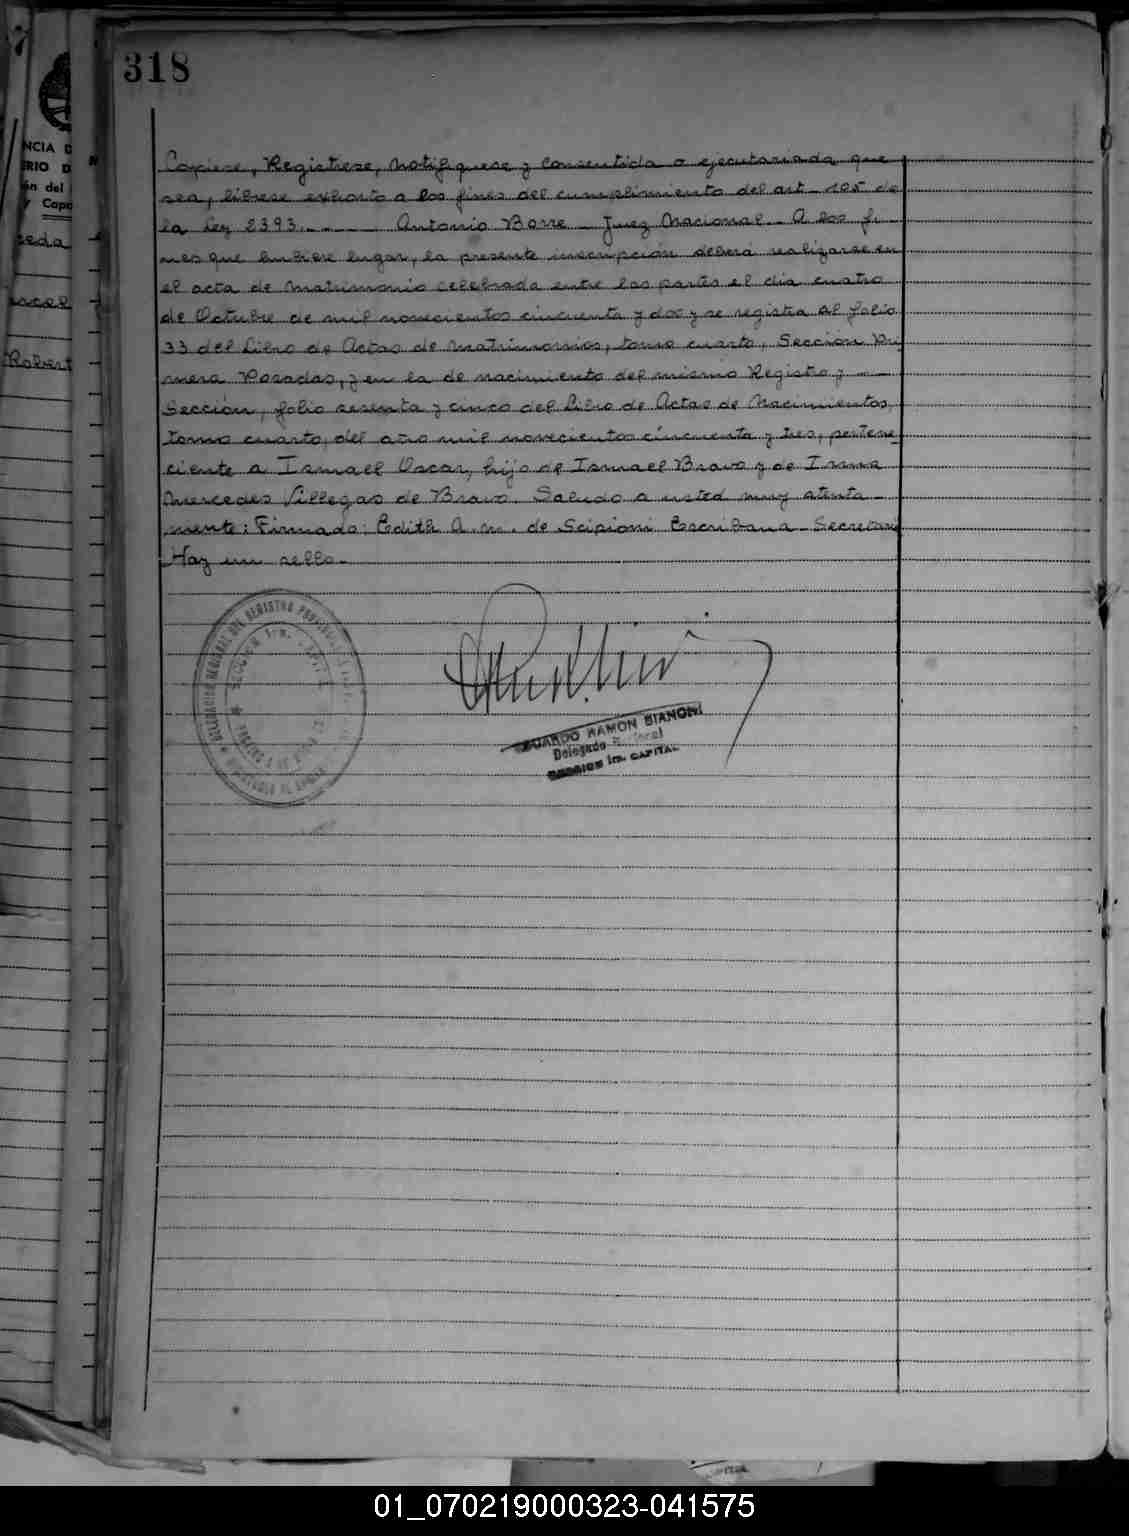 318
Copiese, Registrese, notifiquese y consentida o ejecutariada que
sea, librese exhorto a los fines del cumplimiento del art. 105 de
la Ley 2393. Antonio Borre Juez Nacional A los fi
nes que hubiere lugar, la presente inscripción deberá realizarse en
el acta de matrimonio celebrada entre las partes el día cuatro
de Octubre de mil novecientos cincuenta y dos y se registra al folio
33 del Libro de Actas de Matrimonios, tomo cuarto, Sección Pri
mera Posadas, y en la de nacimiento del mismo Registro y
Sección, folio sesenta y cinco del Libro de Actas de Nacimientos,
tomo cuarto, del año mil novecientos cincuenta y tres, pertene
ciente a Ismael Oscar, hijo de Ismael Bravo y de Irma
Mercedes Villegas de Bravo. Saludo a usted muy atenta
mente: Firmado: Edith A. M. de Scipioni Escribana Secretaria
Hay un sello.
DELEGACION REGIONAL DEL REGISTRO
SECCION 1ra.
EDUARDO RAMON BIANCHI
Delegado
SECCION 1ra. CAPITAL
NCIA D
RIO D
ón del
y Capa
Robert
01_070219000323-041575